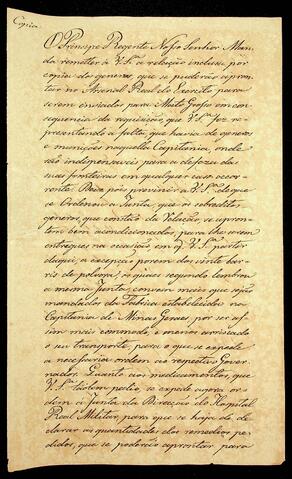 Copia
O Principe Regente Nosso Senhor Man-
da remetter a V. S.ª a relação inclusa por
copia dos generos, que se puderão apron-
tar no Arsenal Real do Exercito para
serem enviados para Mato Grosso em con-
sequencia da requisição, que V. S.ª fez re-
presentando a falta que havia de generos
e munições naquella Capitania, onde
são indispensaveis para a defeza das
suas fronteiras em qualquer caso occor-
rente. Devo pois prevenir a V. S.ª de que
se Ordenou á Junta, que os sobreditos
generos, que constão da Relação, se apron-
tem bem acondicionados, para lhe serem
entregues na occasião em q. V. S.ª partir
daqui, a excepção porem dos vinte bar-
ris de polvora, os quaes segundo lembrou
a mesma Junta, convem mais que sejão
mandados da Fabrica estabelecida na
Capitania de Minas Geraes, por ser as-
sim mais commodo, e menos arriscado
o seu transporte, para o que se expede
a necessaria ordem ao respectivo Gover-
nador. Quanto aos medicamentos, que
V. S.ª tãobem pedio, se expede agora or-
dem á Junta da Direcção do Hospital
Real Militar, para que se haja de de-
clarar as quantidades dos remedios pe-
didos, que se poderão apromptar para